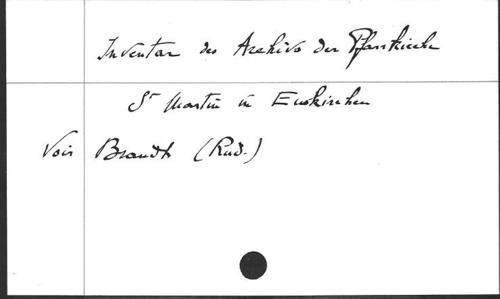 Inventar des Archivs der Pfarrkirche
St Martin in Euskirchen
Voir Brandts (Rud.)